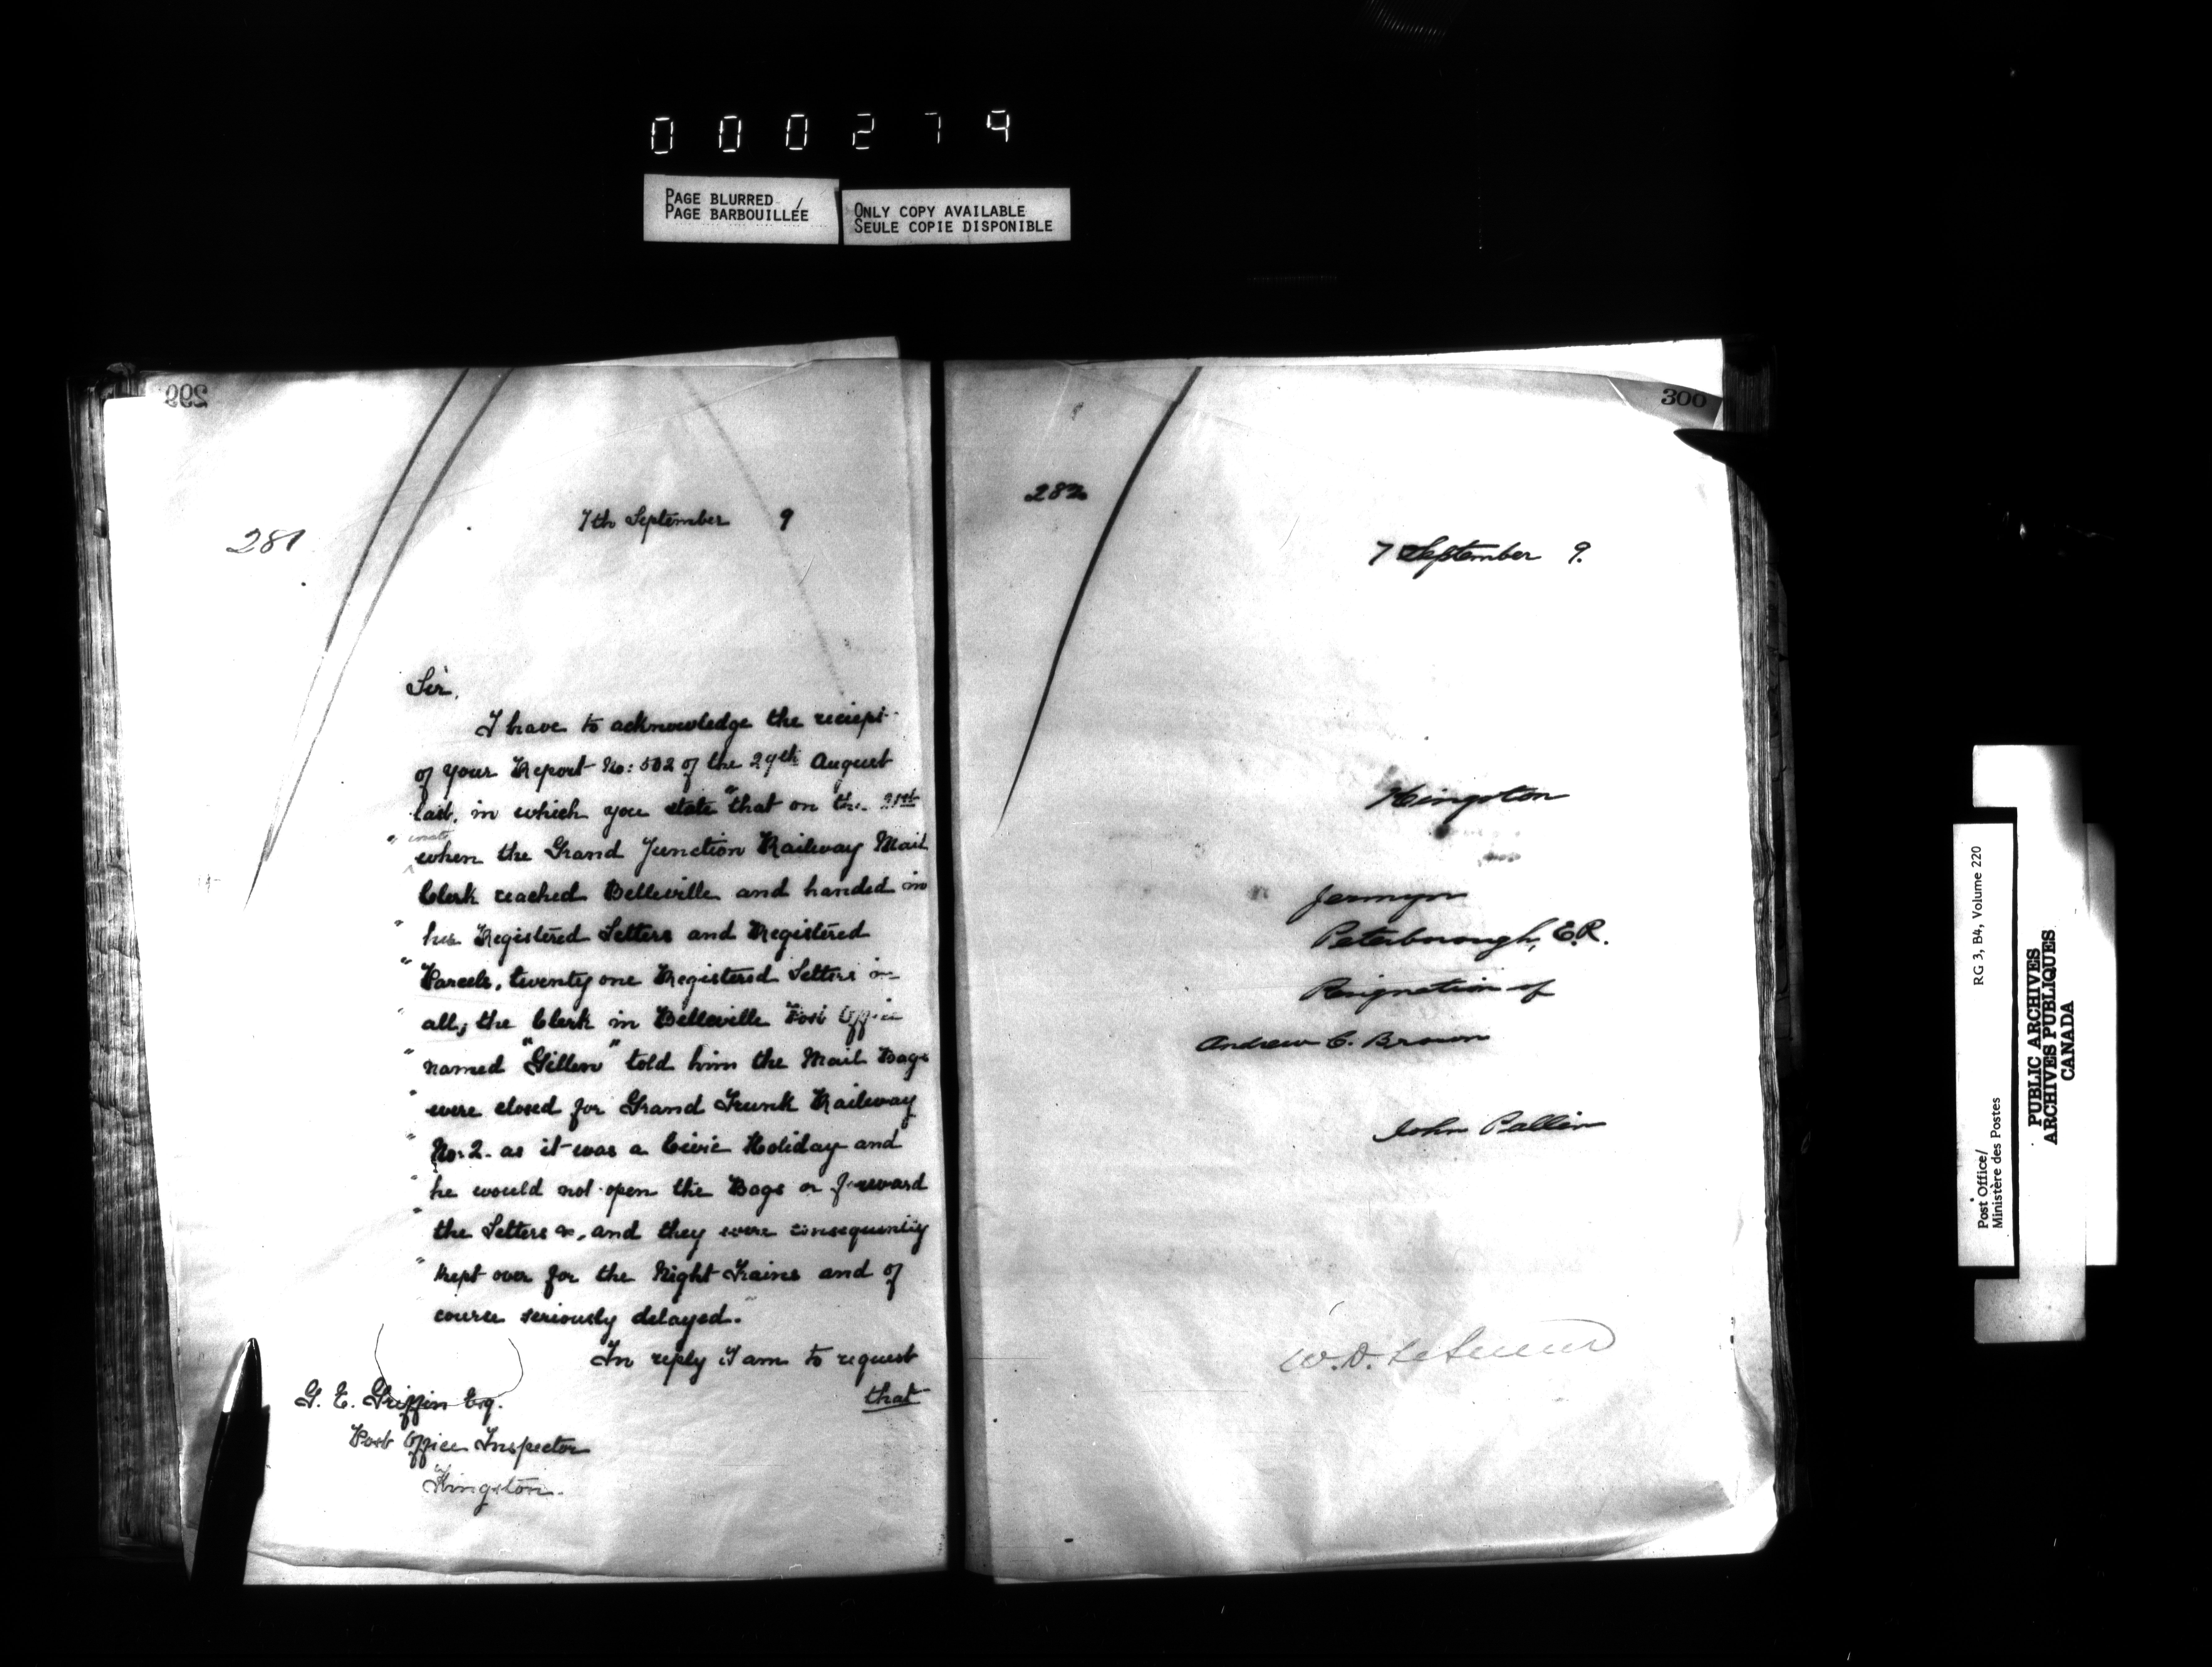 000279
PAGE BLURRED /
PAGE BARBOUILLÉE
ONLY COPY AVAILABLE
SEULE COPIE DISPONIBLE
299
281
7th September 9
Sir,
I have to acknowledge the reciept
of your Report No: 502 of the 29th August
last, in which you state "that on the 21st
" inst
when the Grand Junction Railway Mail
Clerk reached Belleville and handed in
" his Registered Letters and Registered
" Parcels, twenty one Registered Letters in
" all, the Clerk in Belleville Post Office
" named "Gillen" told him the Mail Bags
" were closed for Grand Trunk Railway
" No: 2. as it was a Civic Holiday and
" he would not open the Bags or forward
" the Letters &c, and they were consequently
" kept over for the Night Trains and of
course seriously delayed."
In reply I am to request
that
G. E. Griffin Esq.
Post Office Inspector
Kingston.
300
282
7 September 9.
Kingston
Jermyn
Peterborough, E.R.
Resignation of
Andrew C. Brown
John Pallin
W. D. LeSueur
Post Office/
Ministère des Postes
RG 3, B4, Volume 220
PUBLIC ARCHIVES
ARCHIVES PUBLIQUES
CANADA